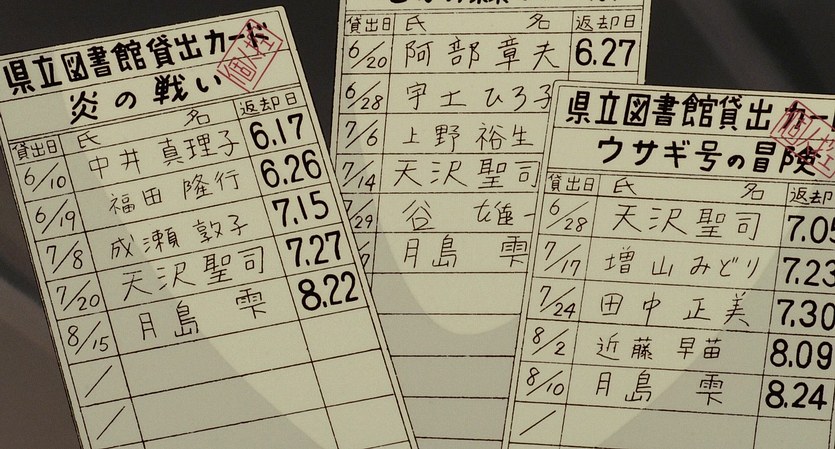 県立図書館貸出カード
炎の戦い
貸出日 氏 名 返却日
6/10 中井 真理子 6.17
6/19 福田 隆行 6.26
7/8 成瀬 敦子 7.15
7/20 天沢聖司 7.27
8/15 月島 雫 8.22
/
/
貸出日 氏 名 返却日
6/20 阿部 章夫 6.27
6/28 宇土 ひろ子
7/6 上野 裕生
7/14 天沢聖司
/29 谷 雄一
月島 雫
県立図書館貸出カー
ウサギ号の冒険
貸出日 氏 名 返却
6/28 天沢聖司 7.05
7/17 増山 みどり 7.23
7/24 田中 正美 7.30
8/2 近藤 早苗 8.09
8/10 月島 雫 8.24